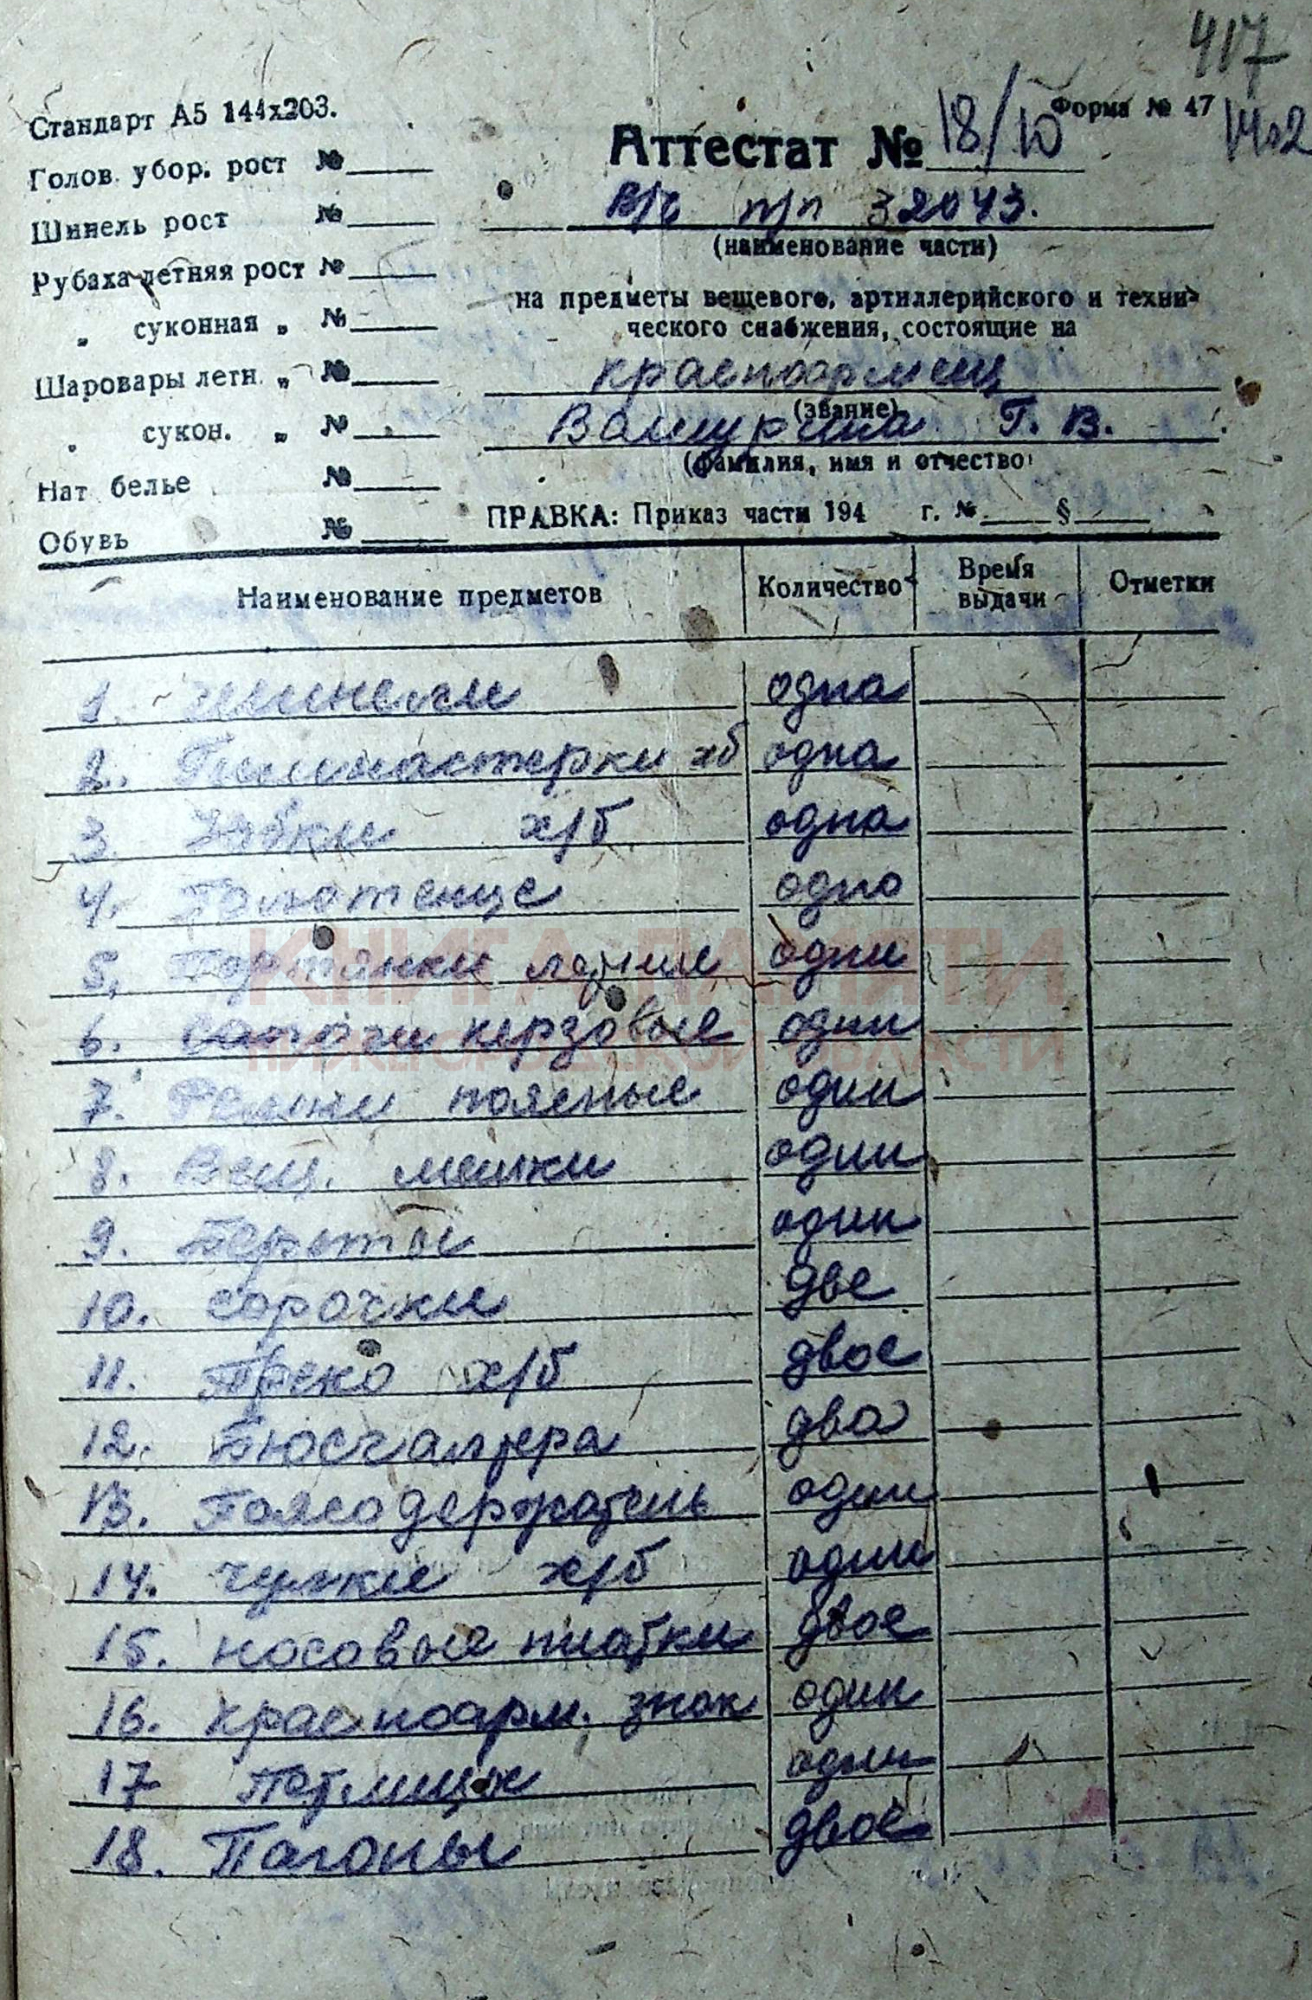 417
Стандарт А5 144х203.
Форма № 47
1402
Аттестат № 18/10
Голов. убор. рост №
в/ч п/п 32043.
Шинель рост №
(наименование части)
Рубаха летняя рост №
на предметы вещевого, артиллерийского и техни-
„ суконная „ №
ческого снабжения, состоящие на
Шаровары летн. „ №
красноармеец
(звание)
„ сукон. „ №
Вашурина Г. В.
(фамилия, имя и отчество)
Нат белье №
ПРАВКА: Приказ части 194 г. № §
Обувь №
Наименование предметов Количество Время выдачи Отметки
1. шинели одна
2. Гимнастерки хб одна
3. Юбки х/б одна
4. Полотенце одно
5. Портянки летние одни
6. сапоги керзовые одни
7. Ремни поясные один
8. Вещ. мешки один
9. Береты один
10. сорочки две
11. Трико х/б двое
12. Бюсгалтера два
13. Поясодержатель один
14. чулки х/б одни
15. носовые платки двое
16. красноарм. знак один
17 Петлицы одни
18. Пагоны двое
КНИГА ПАМЯТИ
НИЖЕГОРОДСКОЙ ОБЛАСТИ